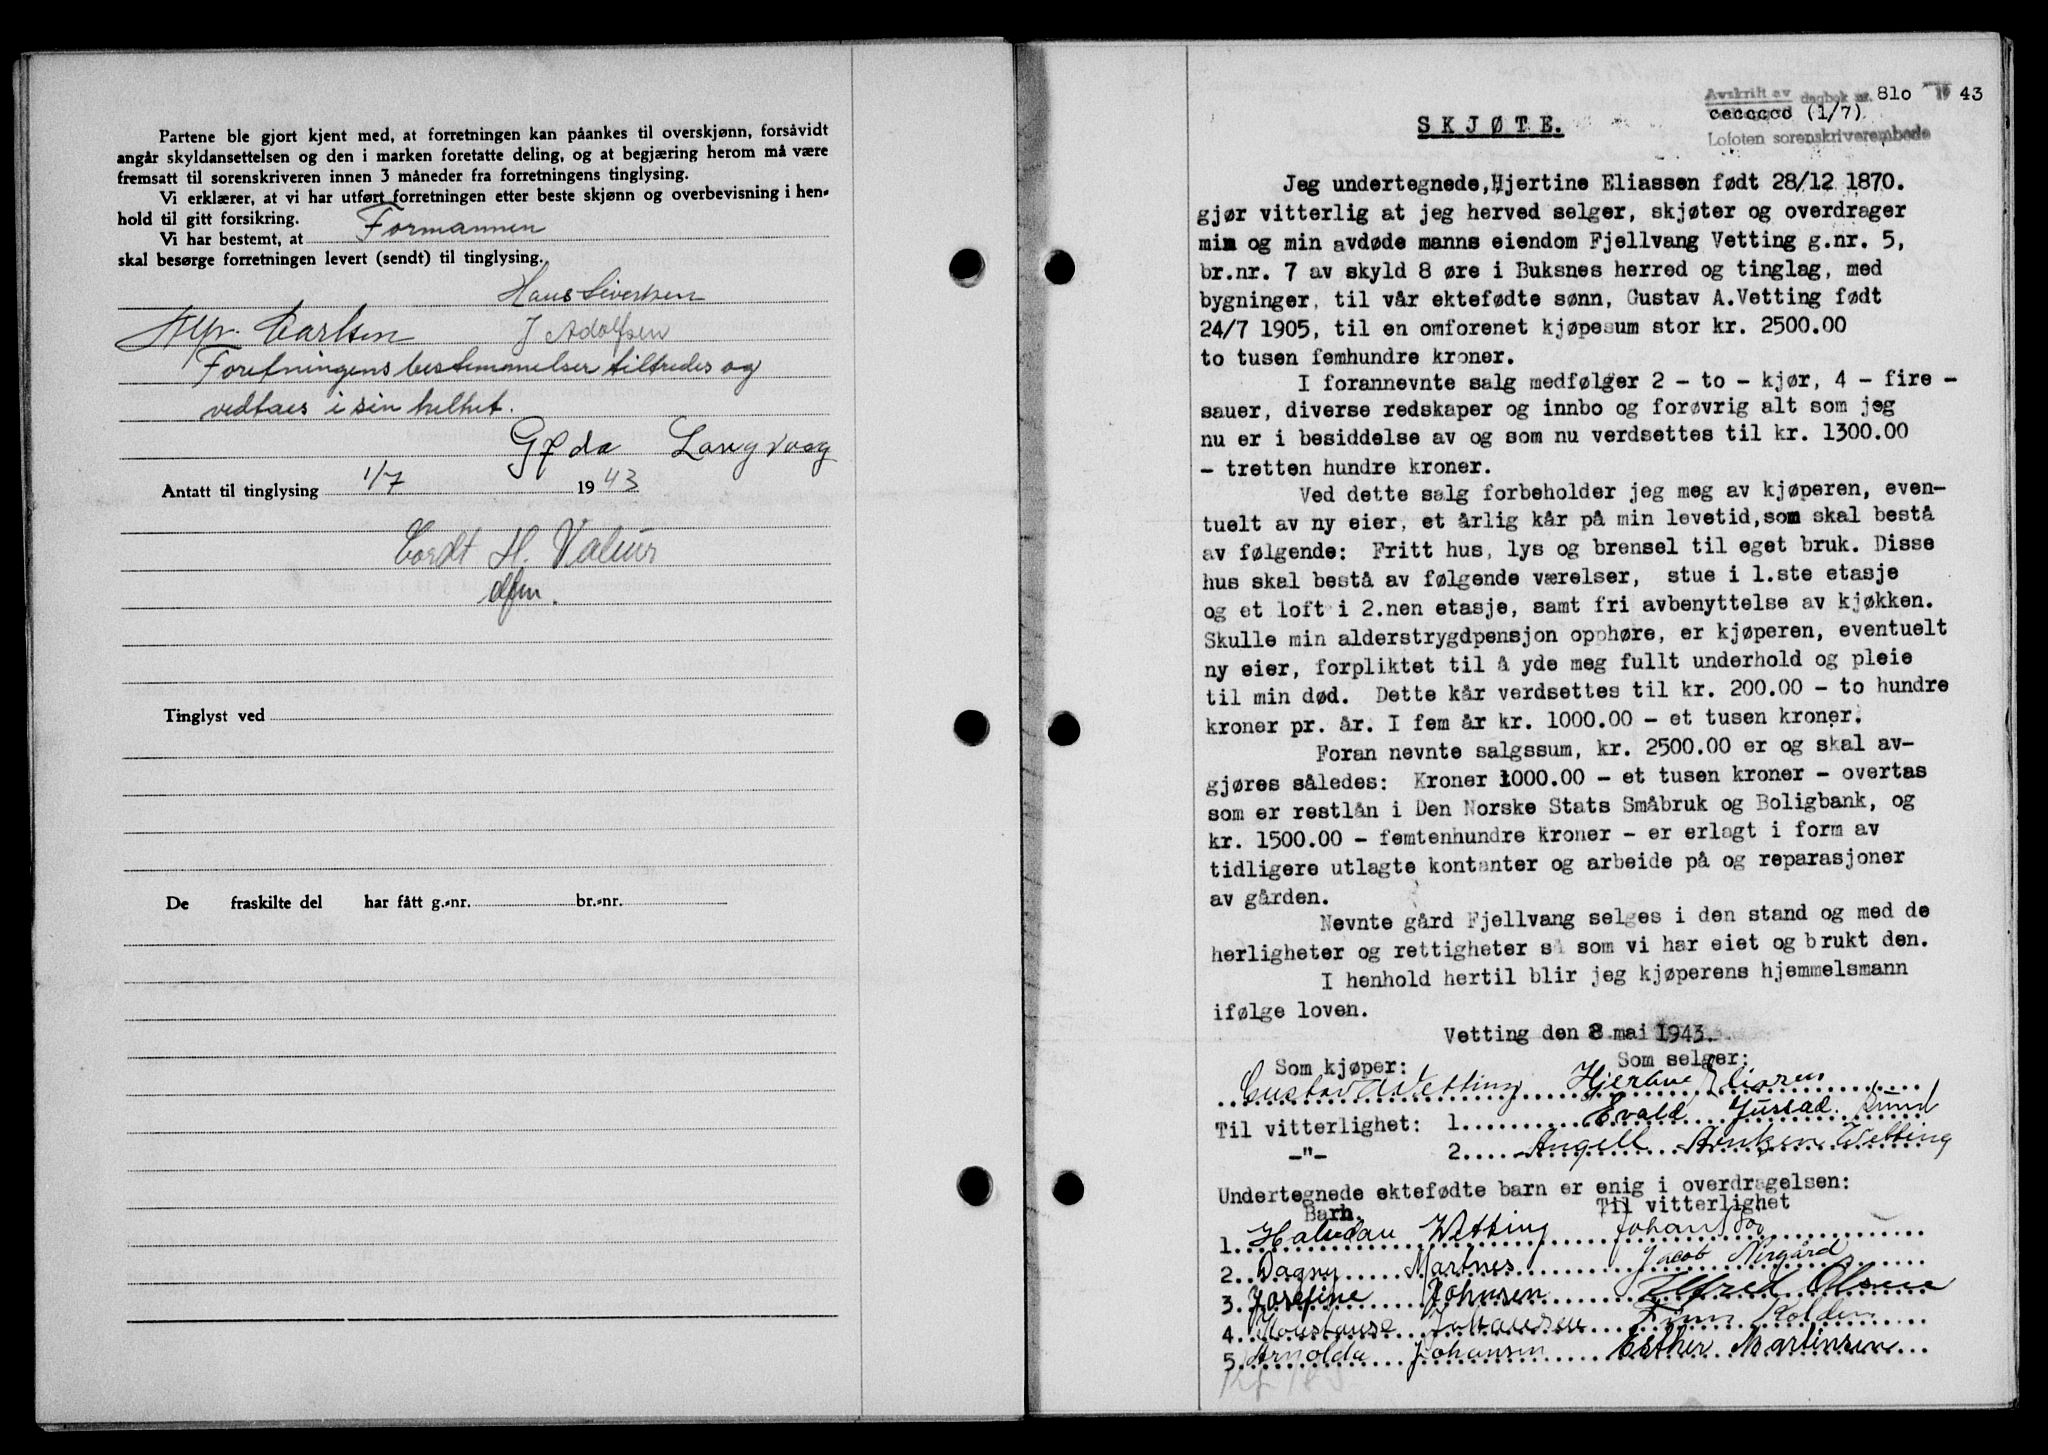 Partene ble gjort kjent med, at forretningen kan påankes til overskjønn, forsåvidt
angår skyldansettelsen og den i marken foretatte deling, og at begjæring herom må være
fremsatt til sorenskriveren innen 3 måneder fra forretningens tinglysing.
Vi erklærer, at vi har utført forretningen etter beste skjønn og overbevisning i hen-
hold til gitt forsikring.
Vi har bestemt, at Formannen
skal besørge forretningen levert (sendt) til tinglysing.
Hans Sivertsen
Alfr. Carlsen J Adolfsen
Foretningens bestemmelser tiltredes og
vedtaes i sin helhet.
Gyda Langvaag
Antatt til tinglysing 1/7 1943
Cordt H. Valeur
dfm.
Tinglyst ved
De fraskilte del har fått g.-nr. br.-nr.
Avskrift av dagbok nr. 810 19 43
(1/7)
Lofoten sorenskriverembede
SKJØTE.
Jeg undertegnede, Hjertine Eliassen født 28/12 1870.
gjør vitterlig at jeg herved selger, skjøter og overdrager
min og min avdøde manns eiendom Fjellvang Vetting g.nr. 5,
br.nr. 7 av skyld 8 øre i Buksnes herred og tinglag, med
bygninger, til vår ektefødte sønn, Gustav A.Vetting født
24/7 1905, til en omforenet kjøpesum stor kr. 2500.00
to tusen femhundre kroner.
I forannevnte salg medfølger 2 - to - kjør, 4 - fire -
sauer, diverse redskaper og innbo og forøvrig alt som jeg
nu er i besiddelse av og som nu verdsettes til kr. 1300.00
- tretten hundre kroner.
Ved dette salg forbeholder jeg meg av kjøperen, even-
tuelt av ny eier, et årlig kår på min levetid,som skal bestå
av følgende: Fritt hus, lys og brensel til eget bruk. Disse
hus skal bestå av følgende værelser, stue i 1.ste etasje
og et loft i 2.nen etasje, samt fri avbenyttelse av kjøkken.
Skulle min alderstrygdpensjon opphøre, er kjøperen, eventuelt
ny eier, forpliktet til å yde meg fullt underhold og pleie
til min død. Dette kår verdsettes til kr. 200.00 - to hundre
kroner pr. år. I fem år kr. 1000.00 - et tusen kroner.
Foran nevnte salgssum, kr. 2500.00 er og skal av-
gjøres således: Kroner 1000.00 - et tusen kroner - overtas
som er restlån i Den Norske Stats Småbruk og Boligbank, og
kr. 1500.00 - femtenhundre kroner - er erlagt i form av
tidligere utlagte kontanter og arbeide på og reparasjoner
av gården.
Nevnte gård Fjellvang selges i den stand og med de
herligheter og rettigheter så som vi har eiet og brukt den.
I henhold hertil blir jeg kjøperens hjemmelsmann
ifølge loven.
Vetting den 8 mai 1943.
Som kjøper: Som selger:
Gustav A Vetting Hjertine Eliasen
Til vitterlighet: 1. Evald Jusstad. Sund
-"- 2. Angell Vetting
Undertegnede ektefødte barn er enig i overdragelsen:
Barn. Til vitterlighet
1. Halvdan Vetting Johan
2. Dagny Martnes Jacob Nergård
3. Josefine Johnsen Alfred Olsen
4. Konstanse Johansen Finn Kolden
5. Arnolda Johansen Esther Martinsen